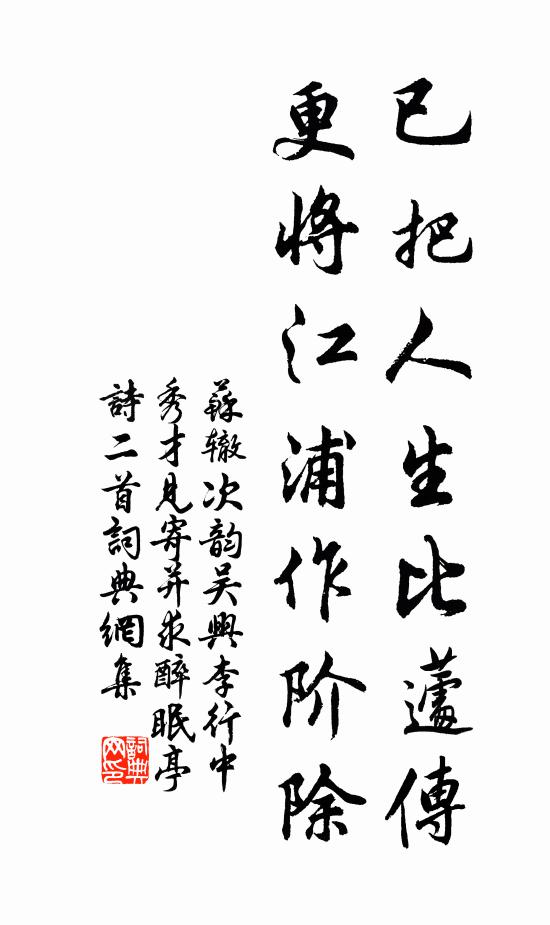 已把人生比蘧傳
更將江浦作阶除
蘇辙次韵吴興李行中
秀才見寄并求醉眠亭
詩二首詞典網集
詞典
网印